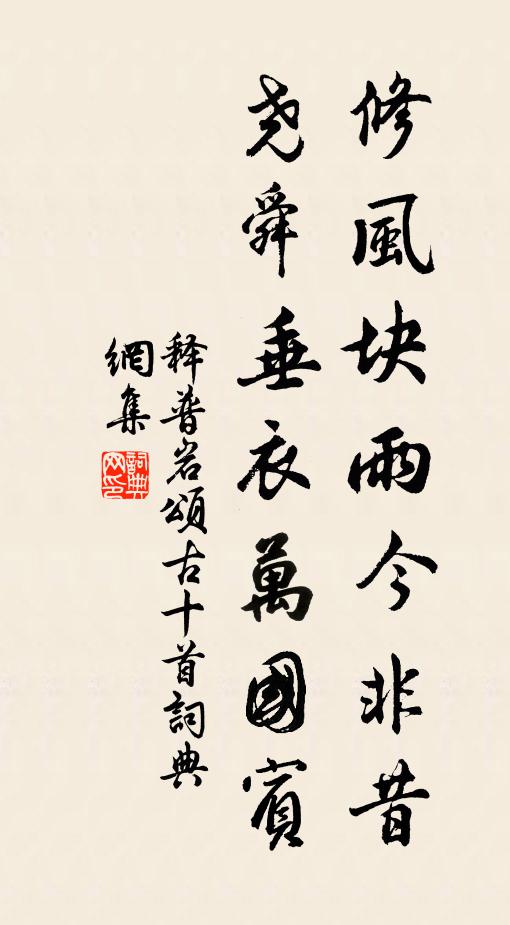 修風块雨今非昔
尧舜垂衣萬國賓
释普岩頌古十首詞典
網集
詞典網印